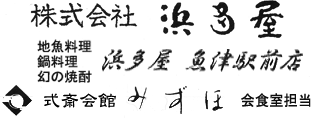 株式会社 浜多屋
地魚料理
鍋料理
幻の焼酎
浜多屋 魚津駅前店
式斎会館 みずほ 会食室担当